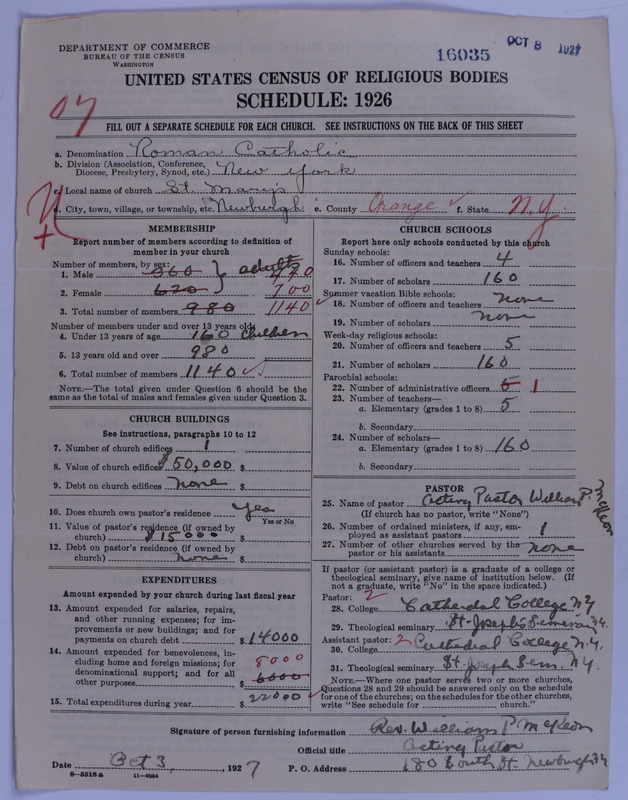 DEPARTMENT OF COMMERCE
BUREAU OF THE CENSUS
WASHINGTON
16035
OCT 8 1927
UNITED STATES CENSUS OF RELIGIOUS BODIES
SCHEDULE: 1926
07
FILL OUT A SEPARATE SCHEDULE FOR EACH CHURCH. SEE INSTRUCTIONS ON THE BACK OF THIS SHEET
a. Denomination Roman Catholic
b. Division (Association, Conference, Diocese, Presbytery, Synod, etc.) New York
c. Local name of church St. Mary's
d. City, town, village, or township, etc. Newburgh e. County Orange f. State N.Y.
MEMBERSHIP
Report number of members according to definition of
member in your church
Number of members, by sex:
1. Male 360 adults
2. Female 620 700
3. Total number of members 980 1140
Number of members under and over 13 years old:
4. Under 13 years of age 160 children
5. 13 years old and over 980
6. Total number of members 1140
NOTE.—The total given under Question 6 should be the
same as the total of males and females given under Question 3.
CHURCH BUILDINGS
See instructions, paragraphs 10 to 12
7. Number of church edifices 1
8. Value of church edifices $50,000 $
9. Debt on church edifices none $
10. Does church own pastor's residence Yes
Yes or No
11. Value of pastor's residence (if owned by
church) $15000 $
12. Debt on pastor's residence (if owned by
church) none $
EXPENDITURES
Amount expended by your church during last fiscal year
13. Amount expended for salaries, repairs,
and other running expenses; for im-
provements or new buildings; and for
payments on church debt $14000
14. Amount expended for benevolences, in-
cluding home and foreign missions; for 8000
denominational support; and for all
other purposes $ 6000
15. Total expenditures during year $22000
CHURCH SCHOOLS
Report here only schools conducted by this church
Sunday schools:
16. Number of officers and teachers 4
17. Number of scholars 160
Summer vacation Bible schools:
18. Number of officers and teachers none
19. Number of scholars none
Week-day religious schools:
20. Number of officers and teachers 5
21. Number of scholars 160
Parochial schools:
22. Number of administrative officers 5 1
23. Number of teachers—
a. Elementary (grades 1 to 8) 5
b. Secondary
24. Number of scholars—
a. Elementary (grades 1 to 8) 160
b. Secondary
PASTOR
25. Name of pastor Acting Pastor William P. McGleon
(If church has no pastor, write "None")
26. Number of ordained ministers, if any, em-
ployed as assistant pastors 1
27. Number of other churches served by the
pastor or his assistants none
If pastor (or assistant pastor) is a graduate of a college or
theological seminary, give name of institution below. (If
not a graduate, write "No" in the space indicated.)
Pastor: 2
28. College Cathedral College NY
29. Theological seminary St. Joseph's Seminary N.Y.
Assistant pastor: 2
30. College Cathedral College N.Y.
31. Theological seminary St. Joseph Sem. N.Y.
NOTE.—Where one pastor serves two or more churches,
Questions 28 and 29 should be answered only on the schedule
for one of the churches; on the schedules for the other churches,
write "See schedule for church."
Signature of person furnishing information Rev. William P McGleon
Official title Acting Pastor
Date Oct 3, 1927 P. O. Address 180 South St Newburgh N.Y.
8—5518a 11—9064